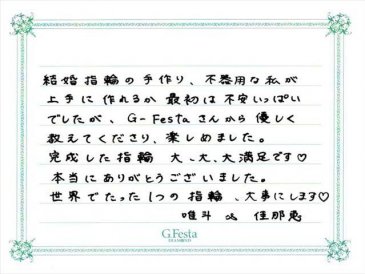 結婚指輪の手作り、不器用な私が
上手に作れるか最初は不安いっぱい
でしたが、G-Festaさんから優しく
教えてくださり、楽しめました。
完成した指輪 大、大、大満足です♡
本当にありがとうございました。
世界でたった1つの指輪、大事にします♡
唯斗 & 佳那恵
G.Festa
DIAMOND